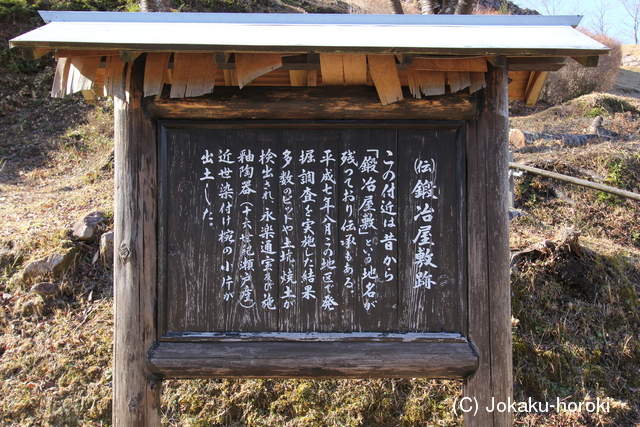 (伝)鍛冶屋敷跡
この付近は昔から
「鍛冶屋敷」という地名が
残っており伝承もある。
平成七年八月この地区で発
掘調査を実施した結果
多数のピットや土坑、焼土が
検出され、永楽通宝及び施
釉陶器(十六世紀瀬戸産)
近世染付け椀の小片が
出土した。
(C) Jokaku-horoki